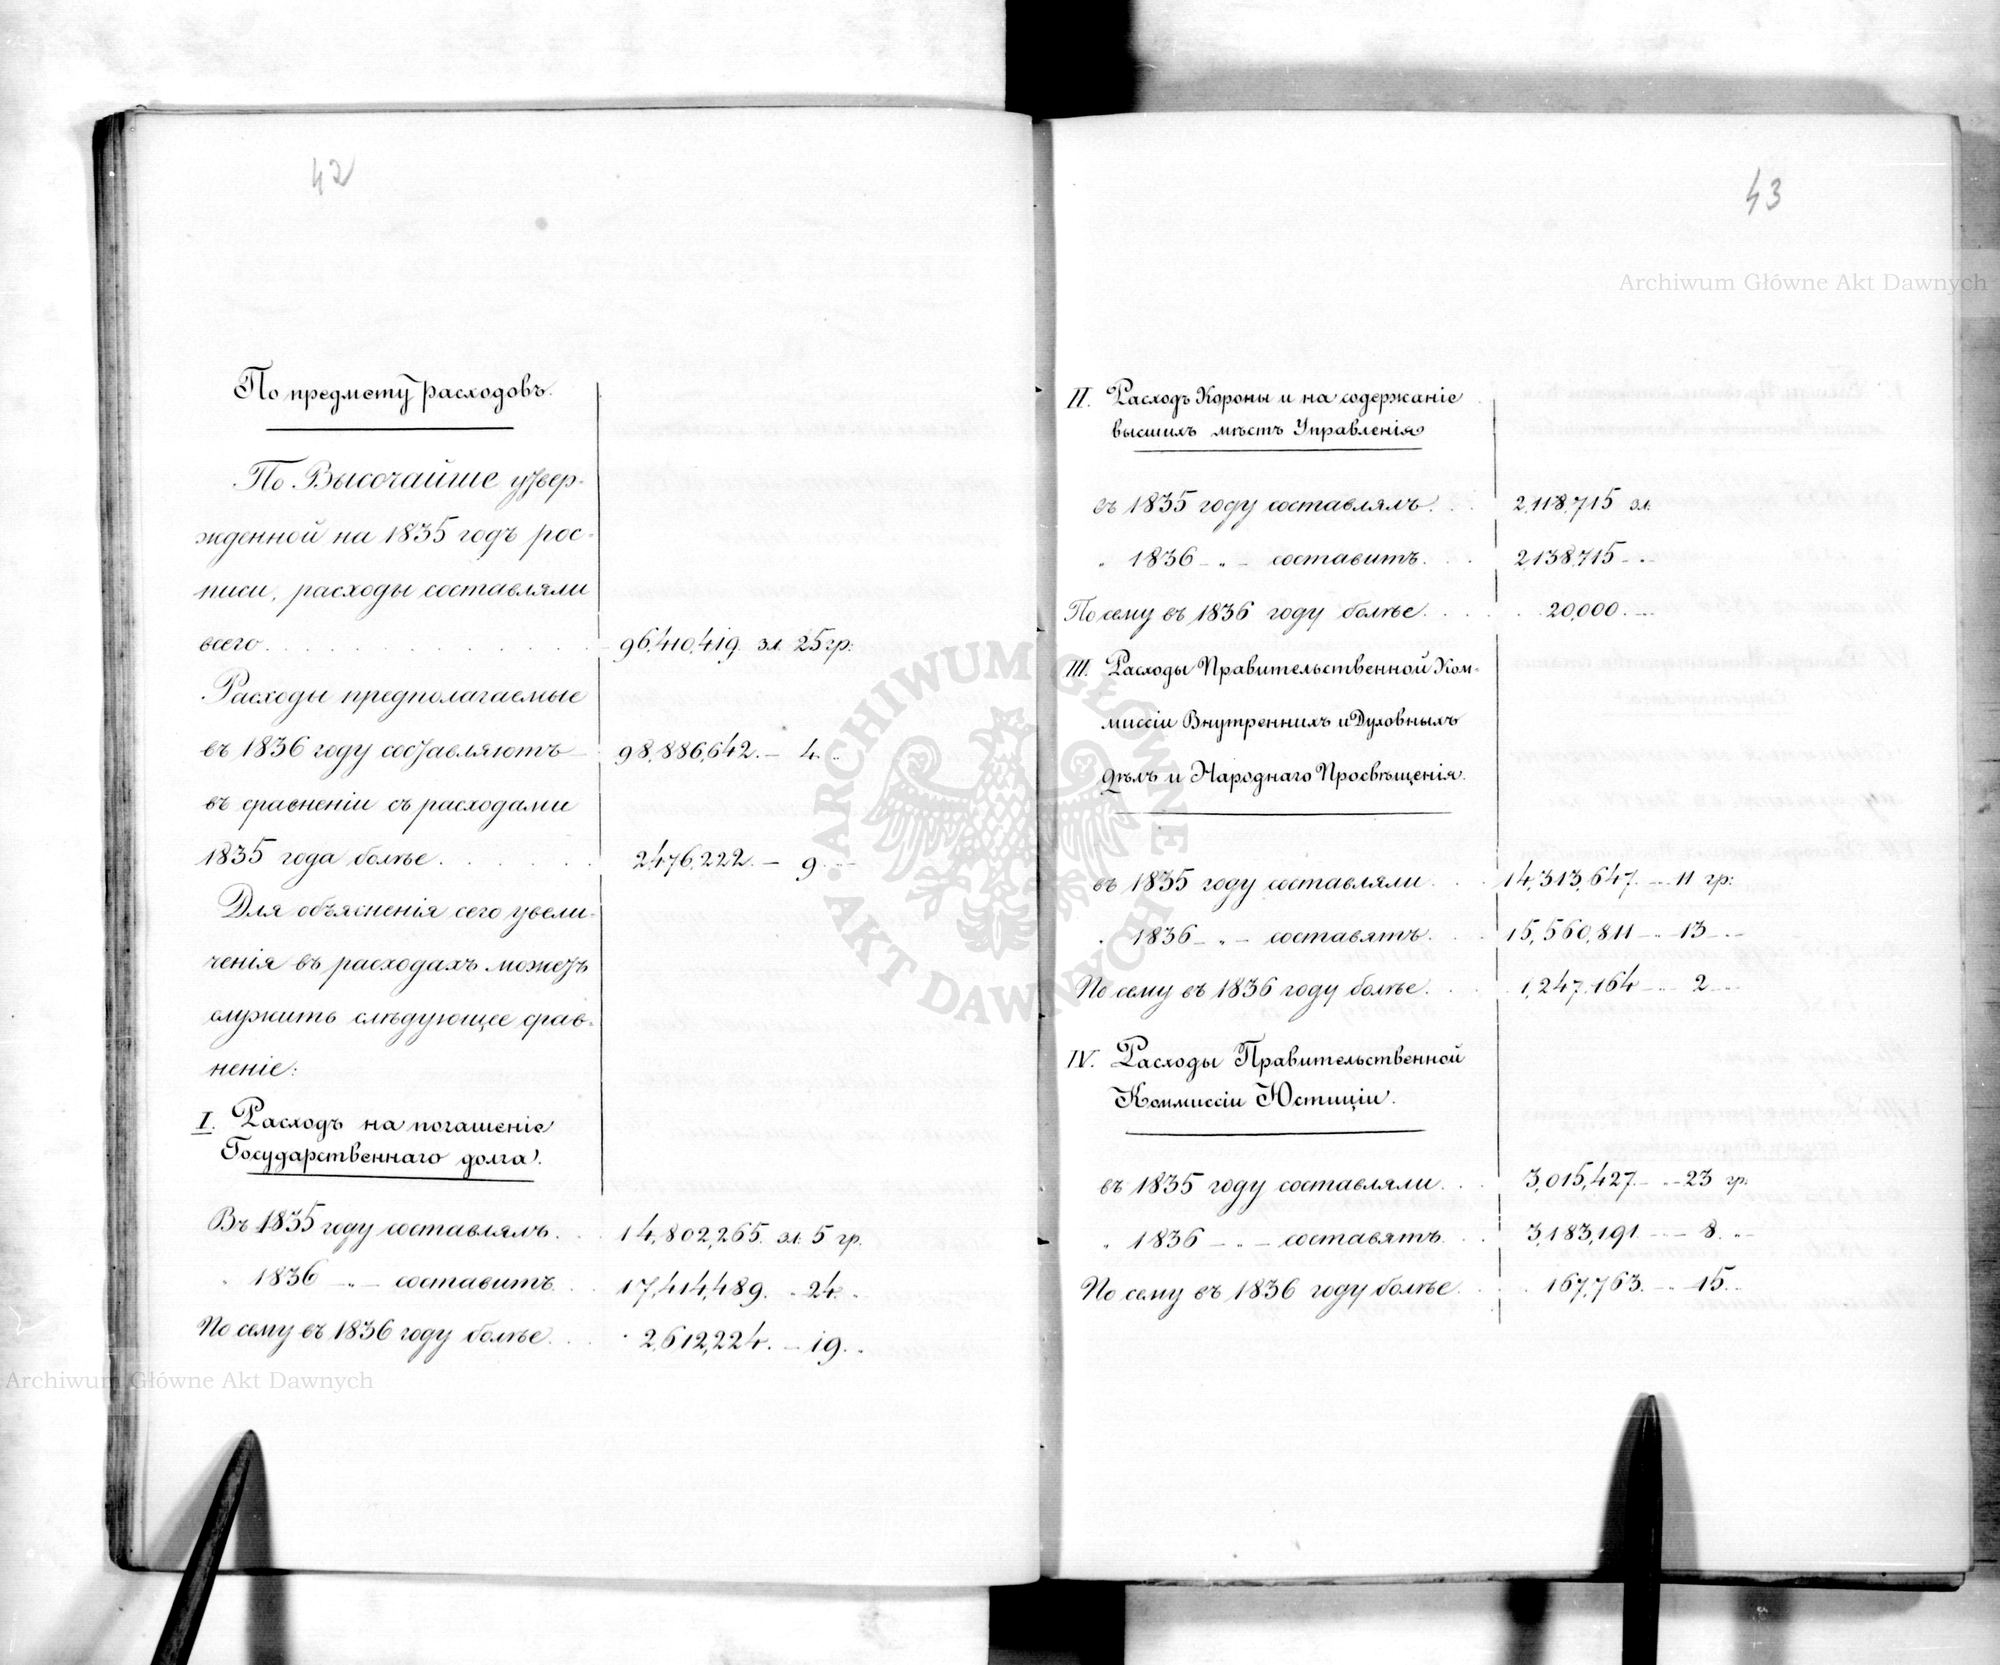 42
По предмету расходовъ.
По Высочайше утвер-
жденной на 1835 годъ рос-
писи, расходы составляли
всего . . . . . . . . . . 96,410,419 зл. 25 гр:
Расходы предполагаемые
въ 1836 году составляютъ 98,886,642. — 4. „
въ сравненіи съ расходами
1835 года болѣе . . . . . 2,476,222. — 9. —
Для объясненія сего увели-
ченія въ расходахъ можетъ
служить слѣдующее срав-
неніе:
I. Расходъ на погашеніе
Государственнаго долга.
Въ 1835 году составлялъ . . 14,802,265. зл. 5 гр.
„ 1836 — „ — составитъ . . 17,414,489. „ 24. „
По сему въ 1836 году болѣе . . 2,612,224. — 19. „
43
II. Расходъ Короны и на содержаніе
высшихъ мѣстъ Управленія
въ 1835 году составлялъ . . . 2,118,715 зл.
„ 1836 — „ — составитъ . . . 2,138,715 — „
По сему въ 1836 году болѣе . . . . 20,000. —
III. Расходы Правительственной Ком-
миссіи Внутреннихъ и Духовныхъ
Дѣлъ и Народнаго Просвѣщенія.
въ 1835 году составляли . . . 14,313,647. — 11 гр:
„ 1836 — „ — составятъ . . . 15,560,811 — „ 13 — „
По сему въ 1836 году болѣе . . . 1,247,164 — „ 2 — „
IV. Расходы Правительственной
Коммиссіи Юстиціи.
въ 1835 году составляли . . . 3,015,427. — „ 23 гр.
„ 1836 — „ — составятъ . . . 3,183,191. — — 8. „
По сему въ 1836 году болѣе . . . 167,763. — „ 15. „
Archiwum Główne Akt Dawnych
ARCHIWUM GŁÓWNE
AKT DAWNYCH
Archiwum Główne Akt Dawnych